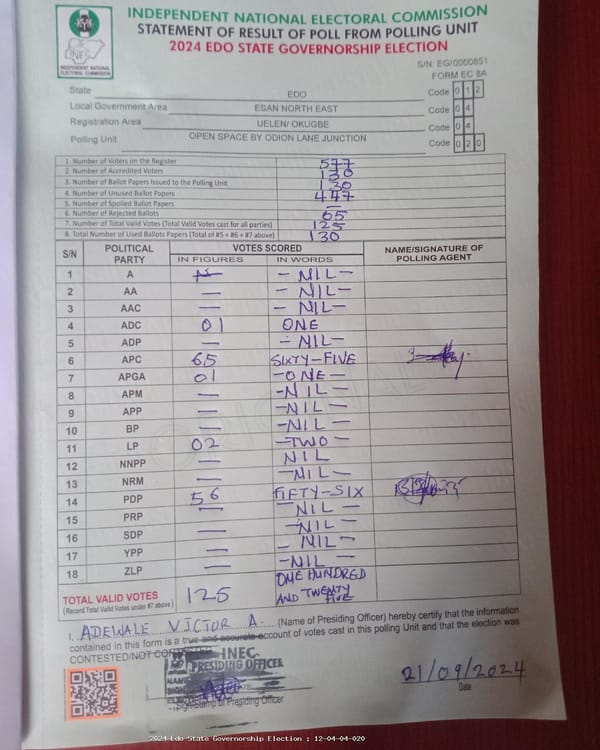 INDEPENDENT NATIONAL ELECTORAL COMMISSION
STATEMENT OF RESULT OF POLL FROM POLLING UNIT
2024 EDO STATE GOVERNORSHIP ELECTION
INEC
INDEPENDENT NATIONAL
ELECTORAL COMMISSION
S/N: EG/0000851
FORM EC 8A
State EDO Code 0 1 2
Local Government Area ESAN NORTH EAST Code 0 4
Registration Area UELEN/ OKUGBE Code 0 4
Polling Unit OPEN SPACE BY ODION LANE JUNCTION Code 0 2 0
1. Number of Voters on the Register 577
2. Number of Accredited Voters 130
3. Number of Ballot Papers Issued to the Polling Unit 130
4. Number of Unused Ballot Papers 447
5. Number of Spoiled Ballot Papers —
6. Number of Rejected Ballots 05
7. Number of Total Valid Votes (Total Valid Votes cast for all parties) 125
8. Total Number of Used Ballots Papers (Total of #5 + #6 + #7 above) 130
S/N POLITICAL PARTY VOTES SCORED NAME/SIGNATURE OF POLLING AGENT
IN FIGURES IN WORDS
1 A — NIL —
2 AA — — NIL —
3 AAC — — NIL —
4 ADC 01 ONE
5 ADP — — NIL —
6 APC 65 SIXTY-FIVE
7 APGA 01 — ONE —
8 APM — — NIL —
9 APP — — NIL —
10 BP — — NIL —
11 LP 02 — TWO —
12 NNPP — NIL
13 NRM — — NIL —
14 PDP 56 FIFTY-SIX
15 PRP — — NIL —
16 SDP — — NIL —
17 YPP — — NIL —
18 ZLP — — NIL —
TOTAL VALID VOTES 125 ONE HUNDRED AND TWENTY FIVE
(Record Total Valid Votes under #7 above)
I, ADEWALE VICTOR A. (Name of Presiding Officer) hereby certify that the information
contained in this form is a true and accurate account of votes cast in this polling Unit and that the election was
CONTESTED/NOT CONTESTED
INEC
PRESIDING OFFICER
NAME
SIGN
Stamp of Presiding Officer
21/09/2024
Date
2024 Edo State Governorship Election : 12-04-04-020